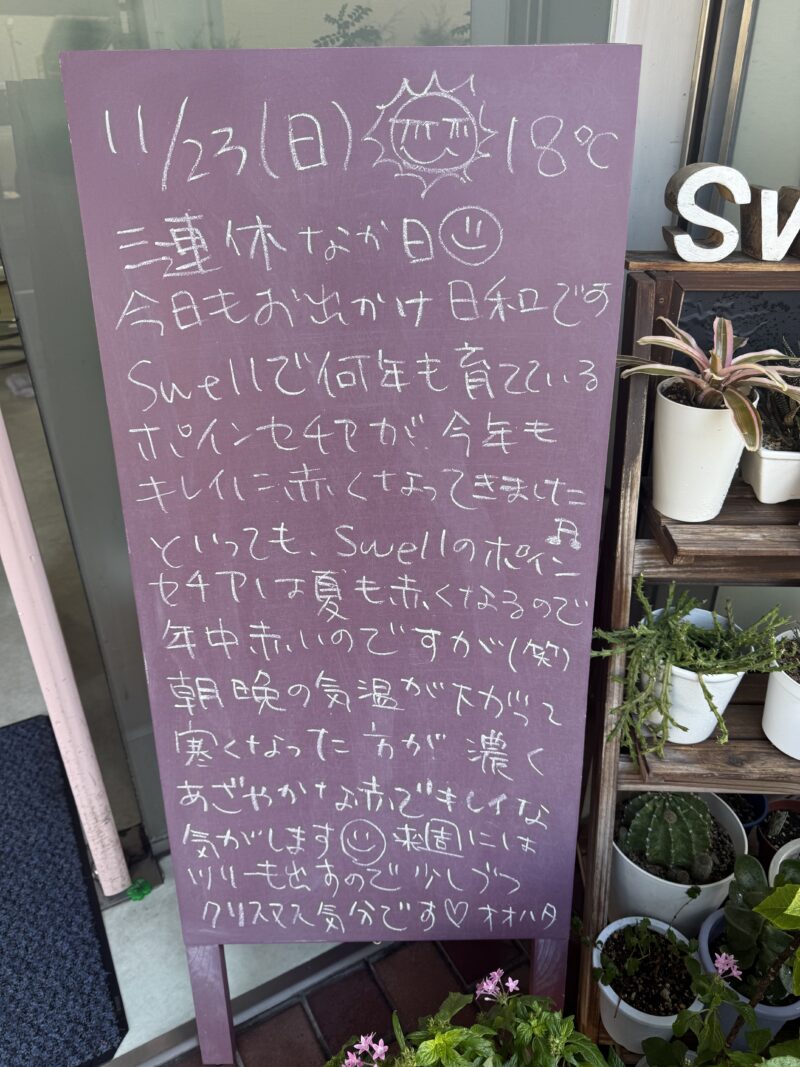 11/23(日) 18℃
三連休なか日
今日もお出かけ日和です
Swellで何年も育てている
ポインセチアが今年も
キレイに赤くなってきました♫
といっても、Swellのポイン
セチアは夏も赤くなるので
年中赤いのですが(笑)
朝晩の気温が下がって
寒くなった方が濃く
あざやかな赤でキレイな
気がします 来週には
ツリーも出すので少しづつ
クリスマス気分です♡オオハタ
Sw